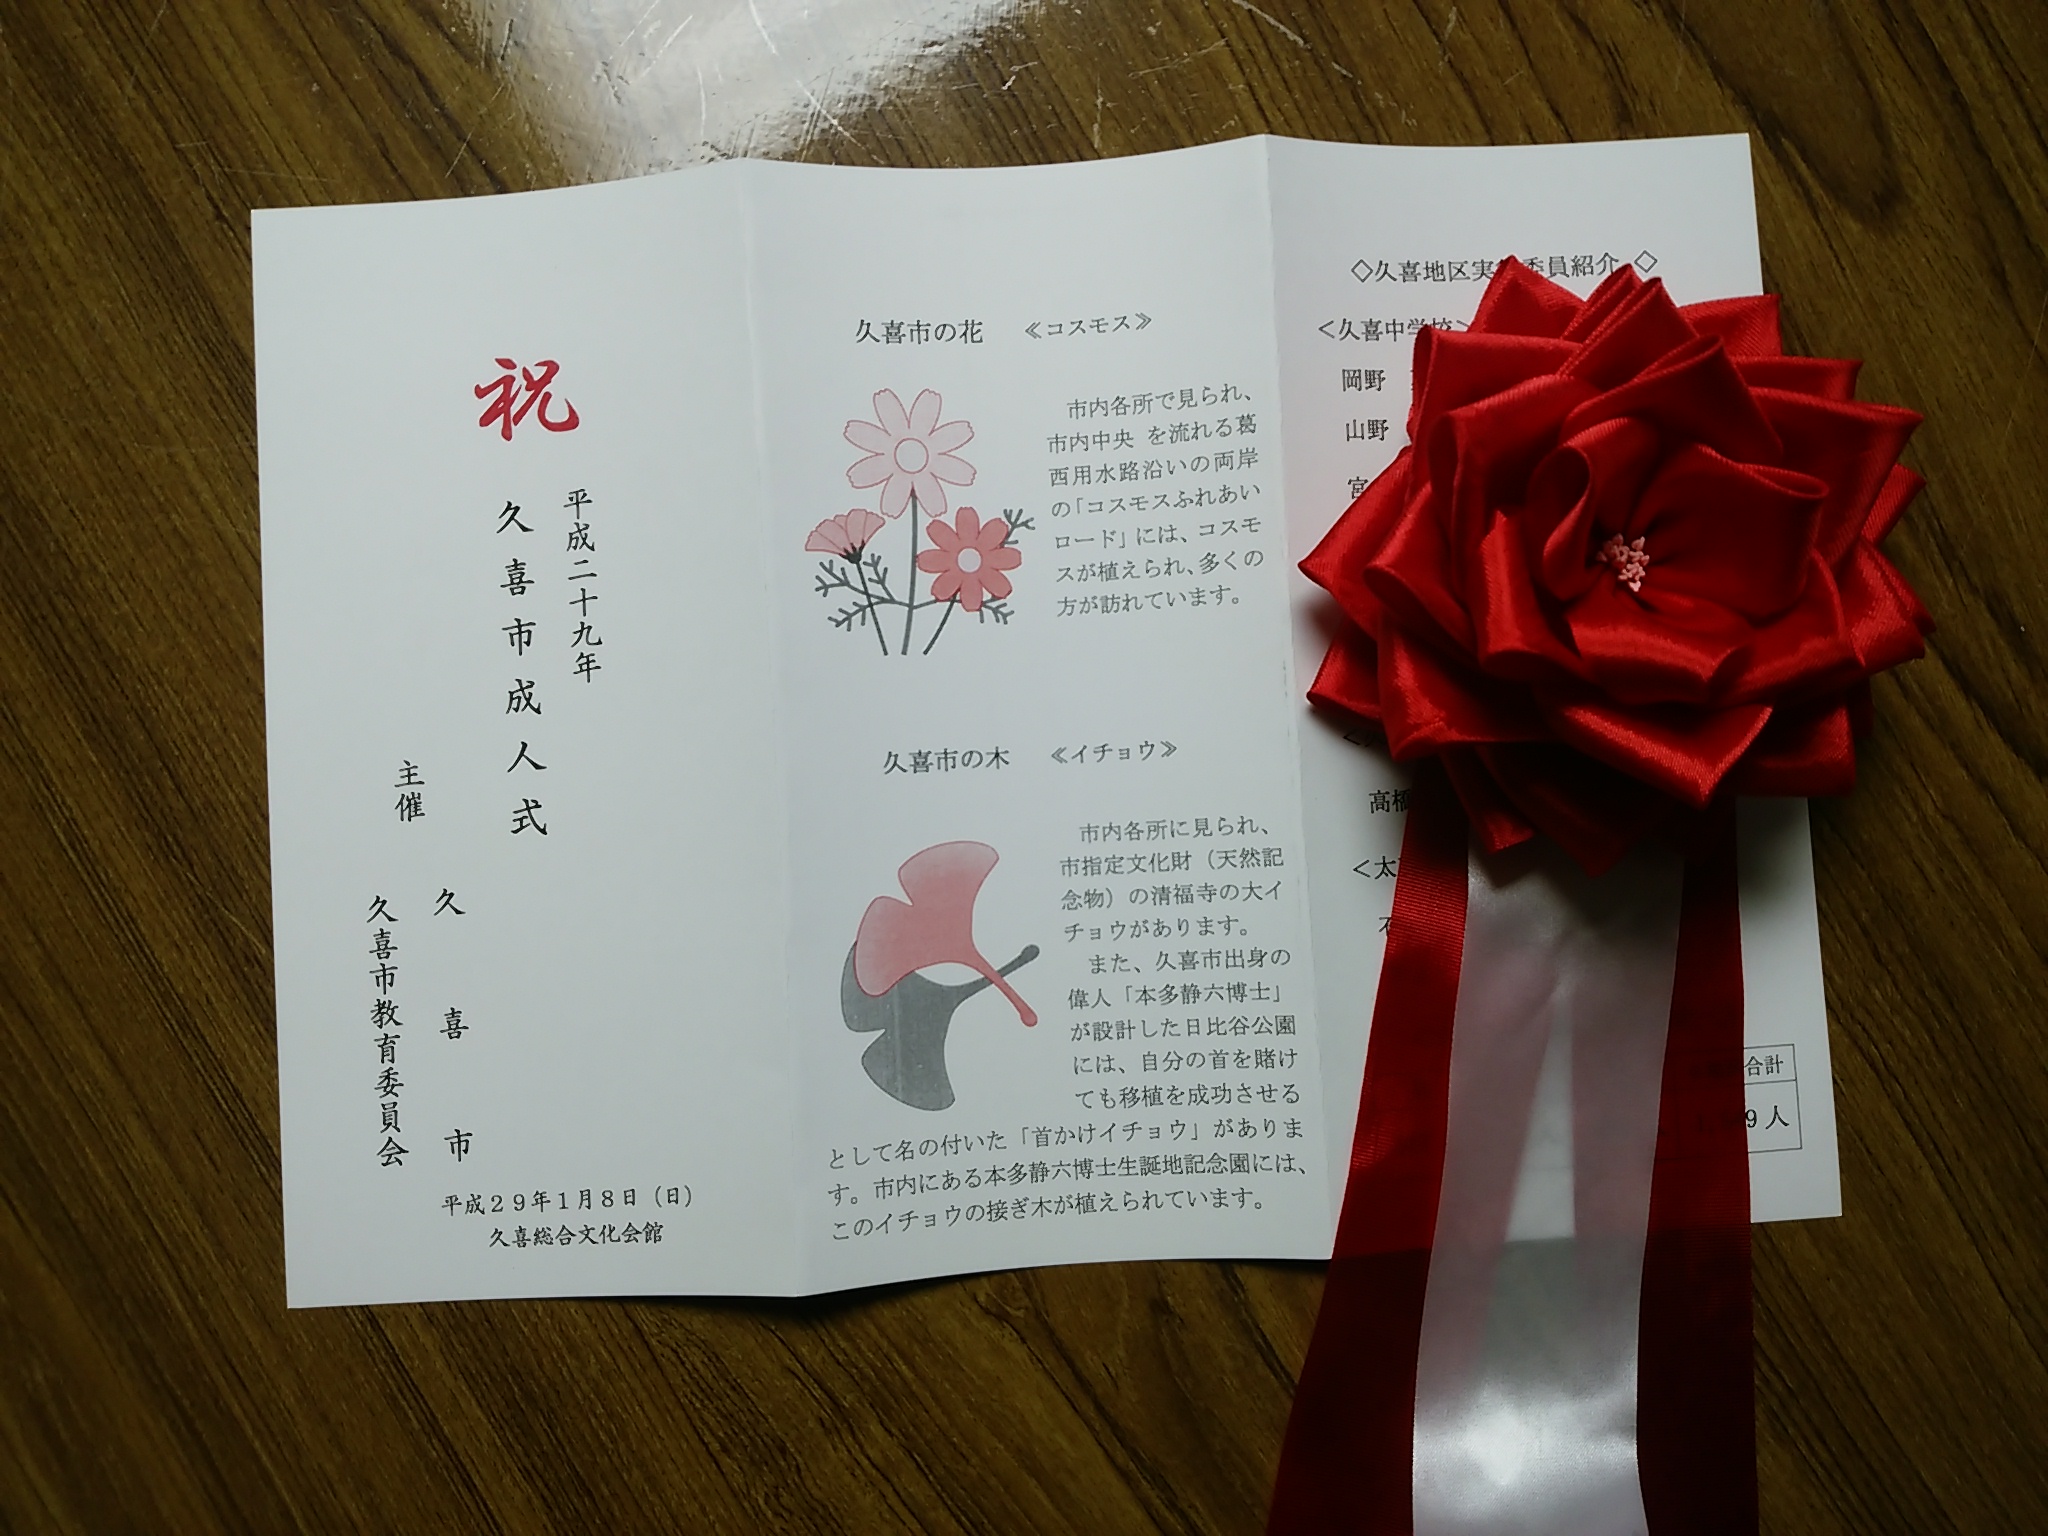 祝
平成二十九年
久喜市成人式
主催
久喜市
久喜市教育委員会
平成２９年１月８日（日）
久喜総合文化会館
久喜市の花 ≪コスモス≫
市内各所で見られ、
市内中央 を流れる葛
西用水路沿いの両岸
の「コスモスふれあい
ロード」には、コスモ
スが植えられ、多くの
方が訪れています。
久喜市の木 ≪イチョウ≫
市内各所に見られ、
市指定文化財（天然記
念物）の清福寺の大イ
チョウがあります。
また、久喜市出身の
偉人「本多静六博士」
が設計した日比谷公園
には、自分の首を賭け
ても移植を成功させる
として名の付いた「首かけイチョウ」がありま
す。市内にある本多静六博士生誕地記念園には、
このイチョウの接ぎ木が植えられています。
◇久喜地区実行委員紹介 ◇
＜久喜中学校＞
岡野
山野
宮
高橋
＜太
合計
9人